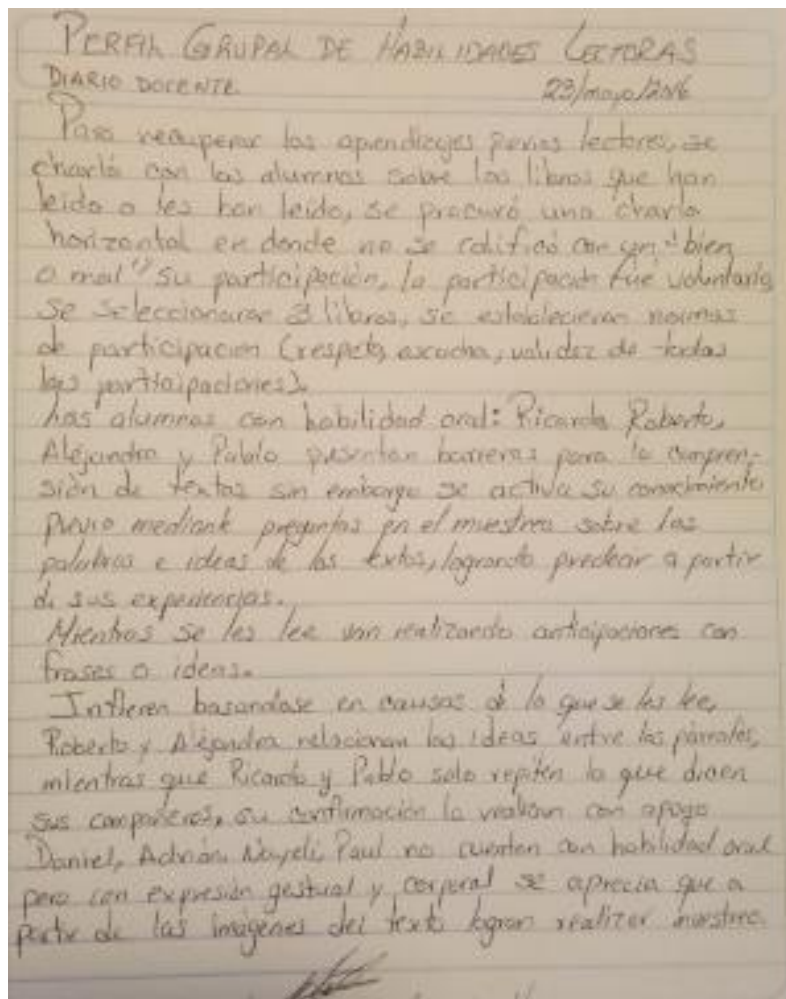 PERFIL GRUPAL DE HABILIDADES LECTORAS
DIARIO DOCENTE 23/mayo/2016
Para recuperar los aprendizajes previos lectores, se
charló con los alumnos sobre los libros que han
leido o les han leido, se procuró una charla
horizontal en donde no se calificó con un "bien
o mal" su participación, la participación fue voluntaria
se seleccionaron 3 libros, se establecieron normas
de participación (respeto, escucha, validez de todas
las participaciones).
Los alumnos con habilidad oral: Ricardo, Roberto,
Alejandra y Pablo presentan barreras para la compren-
sión de textos sin embargo se activa su conocimiento
previo mediante preguntas en el muestreo sobre las
palabras e ideas de los textos, logrando predecir a partir
de sus experiencias.
Mientras se les lee van realizando anticipaciones con
frases o ideas.
Infieren basandose en causas de lo que se les lee,
Roberto y Alejandra relacionan las ideas entre los párrafos,
mientras que Ricardo y Pablo solo repiten lo que dicen
sus compañeros, su confirmación la realizan con apoyo
Daniel, Adrián, Nayeli, Paul no cuentan con habilidad oral
pero con expresión gestual y corporal se aprecia que a
partir de las imágenes del texto logran realizar muestreo.